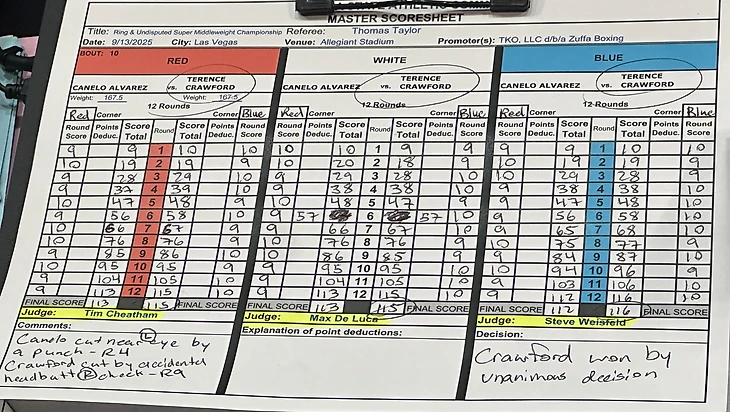 STATE ATHLETIC COMM
MASTER SCORESHEET
Title: Ring & Undisputed Super Middleweight Championship Referee: Thomas Taylor
Date: 9/13/2025 City: Las Vegas Venue: Allegiant Stadium Promoter(s): TKO, LLC d/b/a Zuffa Boxing
BOUT: 10
RED WHITE BLUE
CANELO ALVAREZ vs. TERENCE CRAWFORD CANELO ALVAREZ vs. TERENCE CRAWFORD CANELO ALVAREZ vs. TERENCE CRAWFORD
Weight: 167.5 Weight: 167.5
12 Rounds 12 Rounds 12 Rounds
Red Corner Corner Blue Red Corner Corner Blue Red Corner Corner Blue
Round Score Points Deduc. Score Total Round Score Total Points Deduc. Round Score Round Score Points Deduc. Score Total Round Score Total Points Deduc. Round Score Round Score Points Deduc. Score Total Round Score Total Points Deduc. Round Score
9 9 1 10 10 10 10 1 9 9 9 9 1 10 10
10 19 2 19 9 10 20 2 18 9 10 19 2 19 9
9 28 3 29 10 9 29 3 28 10 10 29 3 28 9
9 37 4 39 10 9 38 4 38 10 9 38 4 38 10
10 47 5 48 9 10 48 5 47 9 9 47 5 48 10
9 56 6 58 10 9 57 6 57 10 9 56 6 58 10
10 66 7 67 9 9 66 7 67 10 9 65 7 68 10
10 76 8 76 9 10 76 8 76 9 10 75 8 77 9
9 85 9 86 10 10 86 9 85 9 9 84 9 87 10
10 95 10 95 9 9 95 10 95 10 10 94 10 96 9
9 104 11 105 10 9 104 11 105 10 9 103 11 106 10
9 113 12 115 10 9 113 12 115 10 9 112 12 116 10
FINAL SCORE 113 115 FINAL SCORE FINAL SCORE 113 115 FINAL SCORE FINAL SCORE 112 116 FINAL SCORE
Judge: Tim Cheatham Judge: Max De Luca Judge: Steve Weisfeld
Comments:
Canelo cut near (L) eye by
a punch - R4
Crawford cut by accidental
headbutt (R) cheek - R9
Explanation of point deductions:
Decision:
Crawford won by
unanimous decision